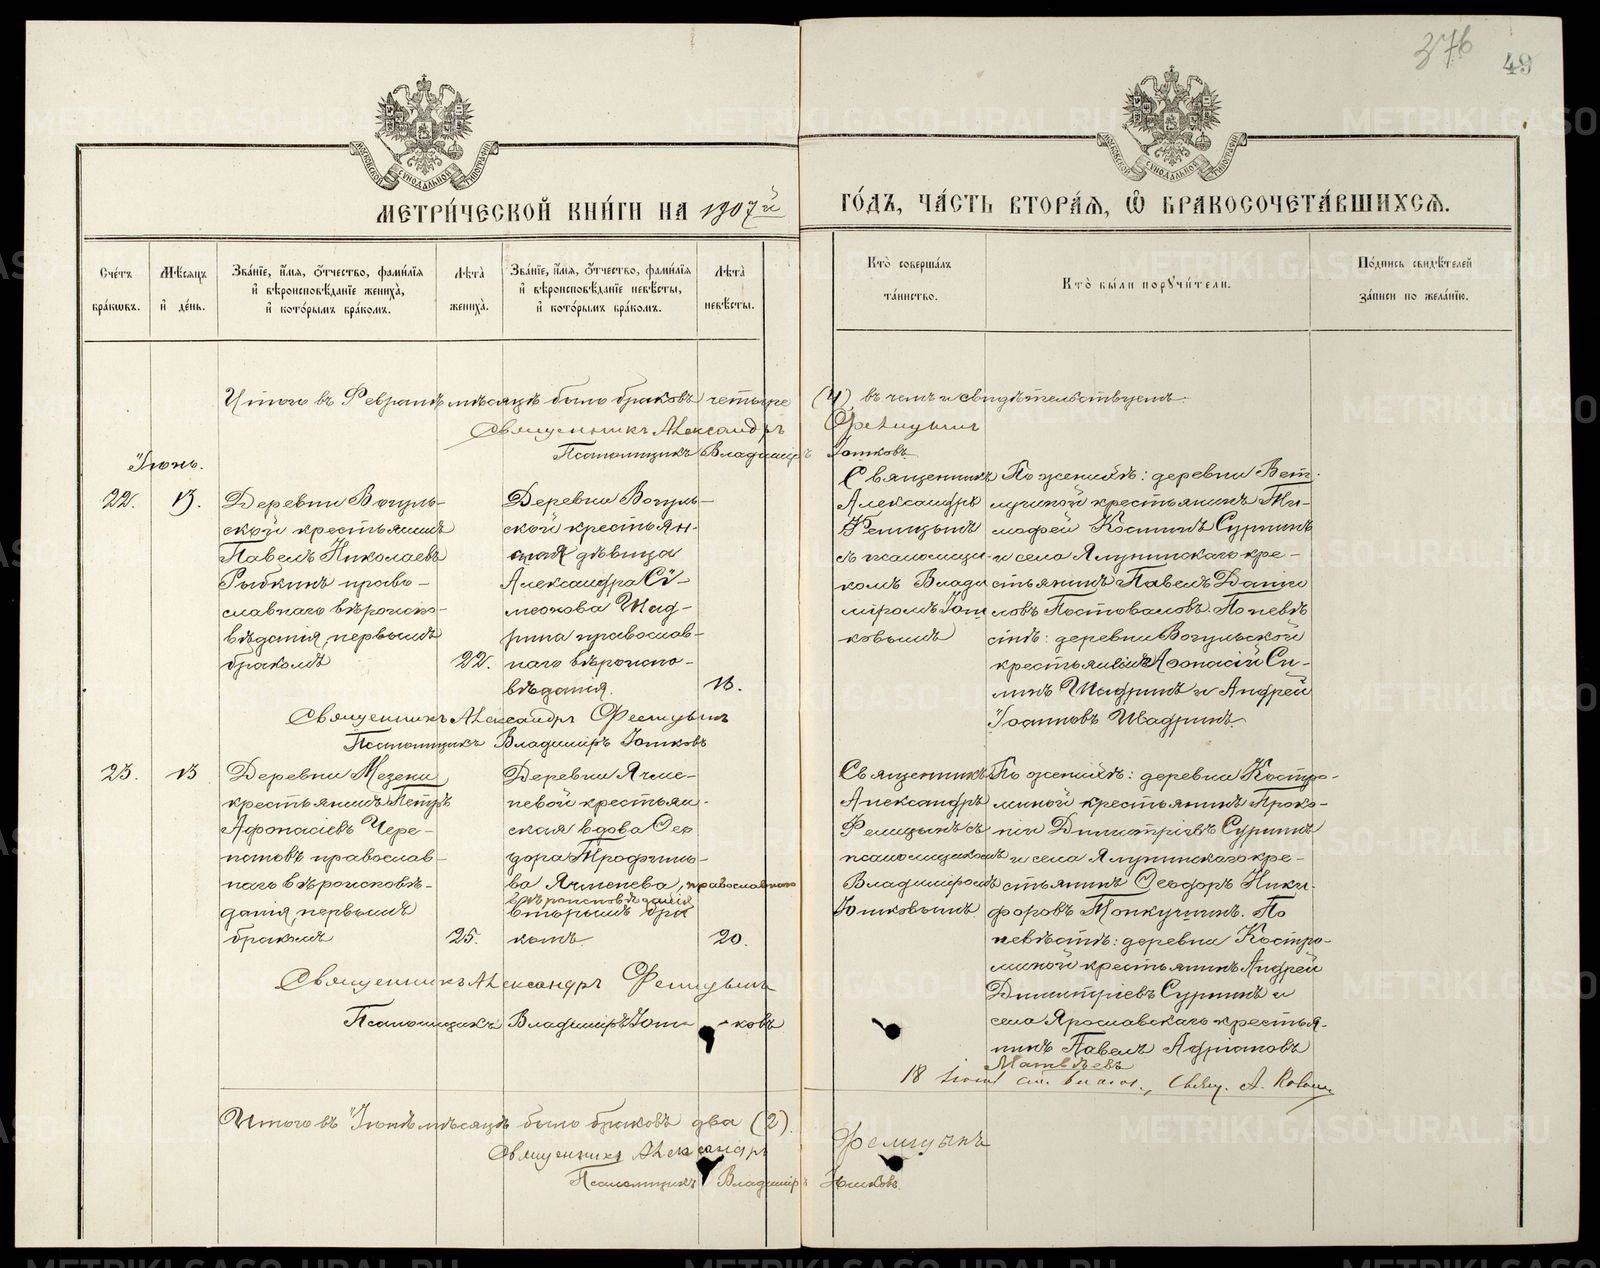 376
49
МОСКОВСКОЙ СѴНОДАЛЬНОЙ ТИПОГРАФІИ
МОСКОВСКОЙ СѴНОДАЛЬНОЙ ТИПОГРАФІИ
МЕТРИ́ЧЕСКОЙ КНИ́ГИ НА 1907й
ГО́ДЪ, ЧА́СТЬ ВТОРА́Ѧ, Ѽ БРАКОСОЧЕТА́ВШИХСѦ.
Сче́тъ бра́кѡвъ.
Мѣ́сѧцъ и҆ де́нь.
Зва́нїе, и҆́мѧ, ѻ҆́тчество, фами́лїѧ и҆ вѣроисповѣ́данїе жениха̀, и҆ кото́рымъ бра́комъ.
Лѣта̀ жениха̀.
Зва́нїе, и҆́мѧ, ѻ҆́тчество, фами́лїѧ и҆ вѣроисповѣ́данїе невѣ́сты, и҆ кото́рымъ бра́комъ.
Лѣта̀ невѣ́сты.
Кто̀ соверша́лъ та́инство.
Кто̀ бы́ли порꙋчи́тели.
По́дпись свидѣ́телей за́писи по жела́нїю.
Итого въ Февралѣ мѣсяцѣ было браковъ четыре (4) въ чемъ и свидѣтельствуемъ:
Священникъ Александръ Фелицынъ
Псаломщикъ Владиміръ Юшковъ
Іюнь.
22.
13.
Деревни Вогуль-
ской крестьянинъ
Павелъ Николаевъ
Рыбкинъ право-
славнаго вѣроиспо-
вѣданія, первымъ
бракомъ
22.
Деревни Вогуль-
ской крестьян-
ская дѣвица
Александра Сі-
меонова Шад-
рина православ-
наго вѣроиспо-
вѣданія.
18.
Священникъ
Александръ
Фелицынъ
съ псаломщи-
комъ Влади-
міромъ Юш-
ковымъ
По женихѣ: деревни Вет-
лугиной крестьянинъ Ти-
мофей Косминъ Суринъ
и села Ялунинскаго кре-
стьянинъ Павелъ Дани-
ловъ Постоваловъ. По невѣ-
стѣ: деревни Вогульской
крестьянинъ Аѳонасій Си-
линъ Шадринъ и Андрей
Іоанновъ Шадринъ.
Священникъ Александръ Фелицынъ
Псаломщикъ Владиміръ Юшковъ
23.
13
Деревни Мезени
крестьянинъ Петръ
Аѳонасіевъ Чере-
пановъ православ-
наго вѣроисповѣ-
данія, первымъ
бракомъ
25.
Деревни Ячме-
невой крестьян-
ская вдова Ѳео-
дора Трофимо-
ва Ячменева, православнаго
вѣроисповѣданія
вторымъ бра-
комъ
20.
Священникъ
Александръ
Фелицынъ съ
псаломщикомъ
Владиміромъ
Юшковымъ
По женихѣ: деревни Костро-
миной крестьянинъ Проко-
пій Димитріевъ Суринъ
и села Ялунинскаго кре-
стьянинъ Ѳеодоръ Ники-
форовъ Монкушинъ. По
невѣстѣ: деревни Костро-
миной крестьянинъ Андрей
Димитріевъ Суринъ и
села Ярославскаго крестья-
нинъ Павелъ Адріановъ
Матвѣевъ
Священникъ Александръ Фелицынъ
Псаломщикъ Владиміръ Юшковъ
18
Итого въ Іюнѣ мѣсяцѣ было браковъ два (2).
Священникъ Александръ Фелицынъ
Псаломщикъ Владиміръ Юшковъ.
METRIKI.GASO-URAL.RU